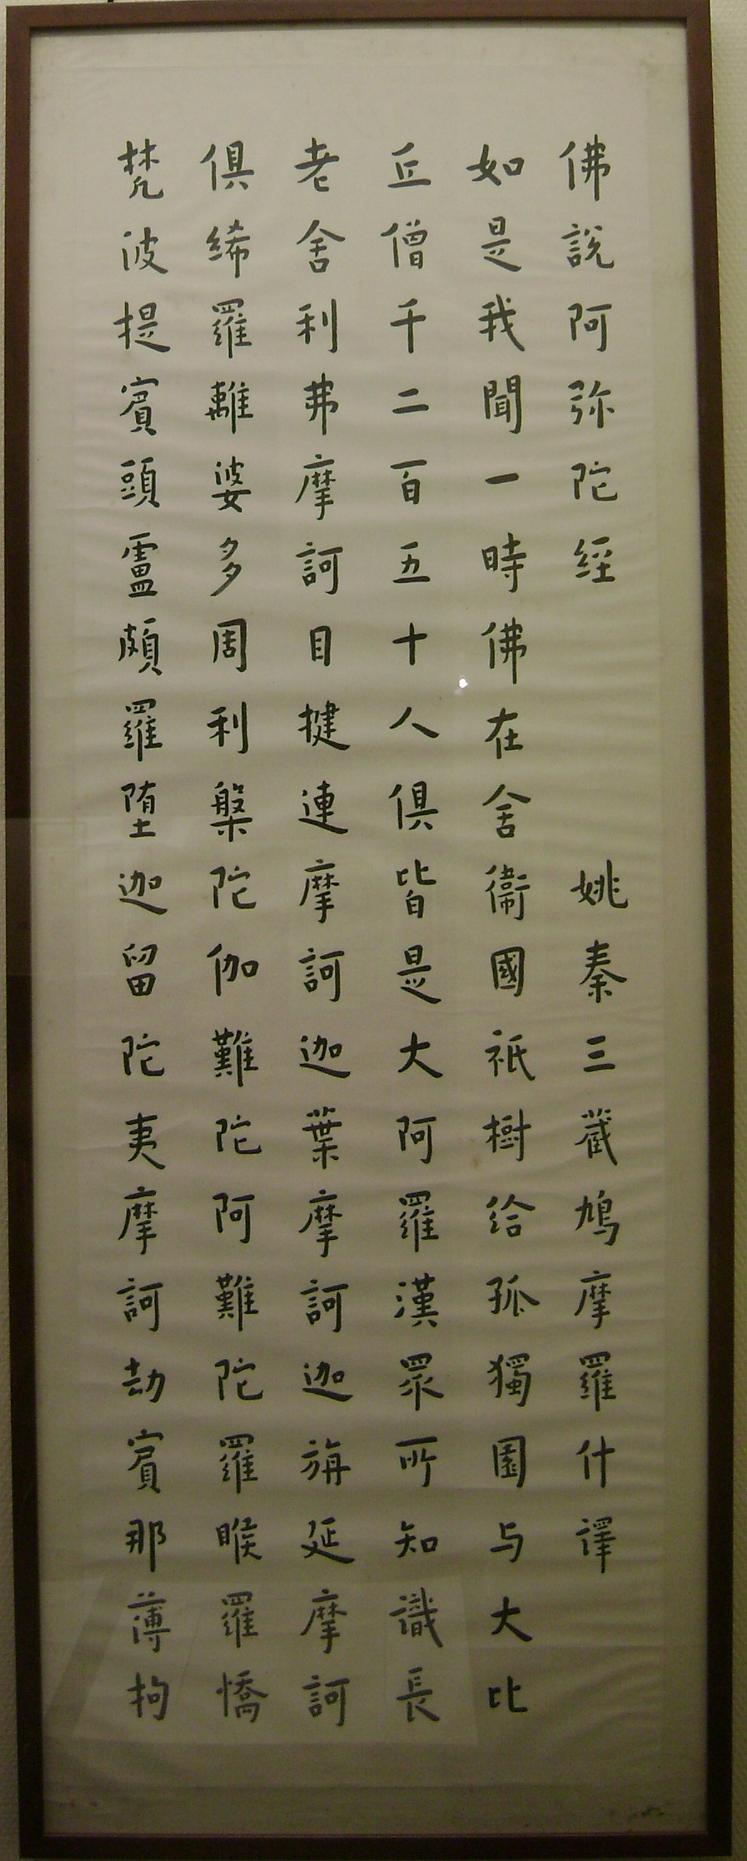 佛說阿弥陀經 姚秦三藏鳩摩羅什譯
如是我聞一時佛在舍衞國祇樹給孤獨園与大比
丘僧千二百五十人俱皆是大阿羅漢眾所知識長
老舍利弗摩訶目揵連摩訶迦葉摩訶迦旃延摩訶
俱絺羅離婆多周利槃陀伽難陀阿難陀羅睺羅憍
梵波提賓頭盧頗羅堕迦留陀夷摩訶劫賓那薄拘